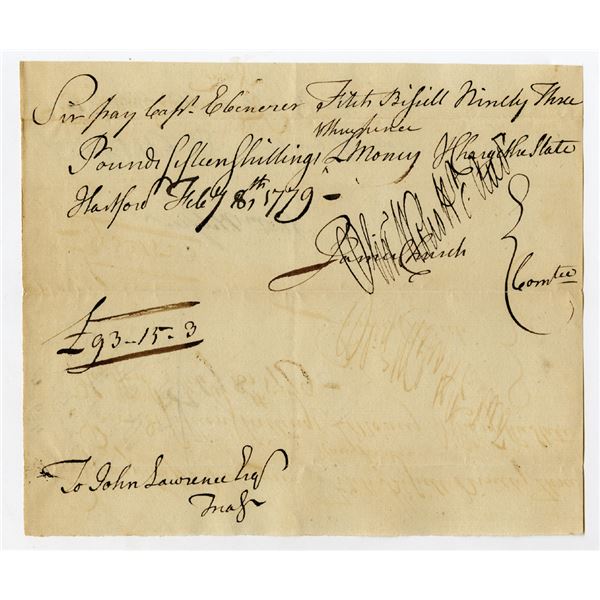 Sir pay Capt. Ebenezer Fitch Bissell Ninety Three
Pounds fifteen Shillings & three pence L Money & Charge the State
Hartford Feby 8th 1779
James Church } Comtee
£93-15-3
To John Lawrence Esqr
Treasr